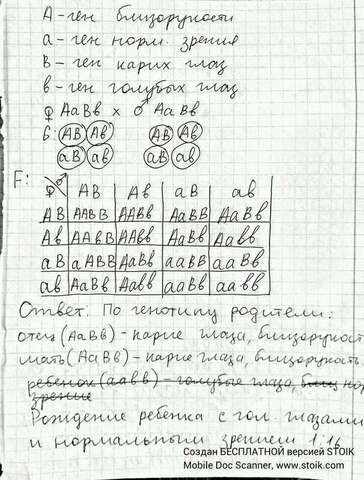 А - ген близорукости
а - ген норм. зрения
В - ген карих глаз
в - ген голубых глаз
♀ АаВв х ♂ АаВв
G: АВ Ав АВ Ав
аВ ав аВ ав
F:
♀ ♂ АВ Ав аВ ав
АВ ААВВ ААВв АаВВ АаВв
Ав ААВв ААвв АаВв Аавв
аВ аАВВ АаВв ааВВ ааВв
ав АаВв Аавв ааВв аавв
Ответ: По генотипу родители:
отец (АаВв) - карие глаза, близорукост
мать (АаВв) - карие глаза, близорукость
ребенок (аавв) - голубые глаза, близ нор
зрение
Рождение ребенка с гол. глазами
и нормальным зрением 1:16
Создан БЕСПЛАТНОЙ версией STOIK
Mobile Doc Scanner, www.stoik.com